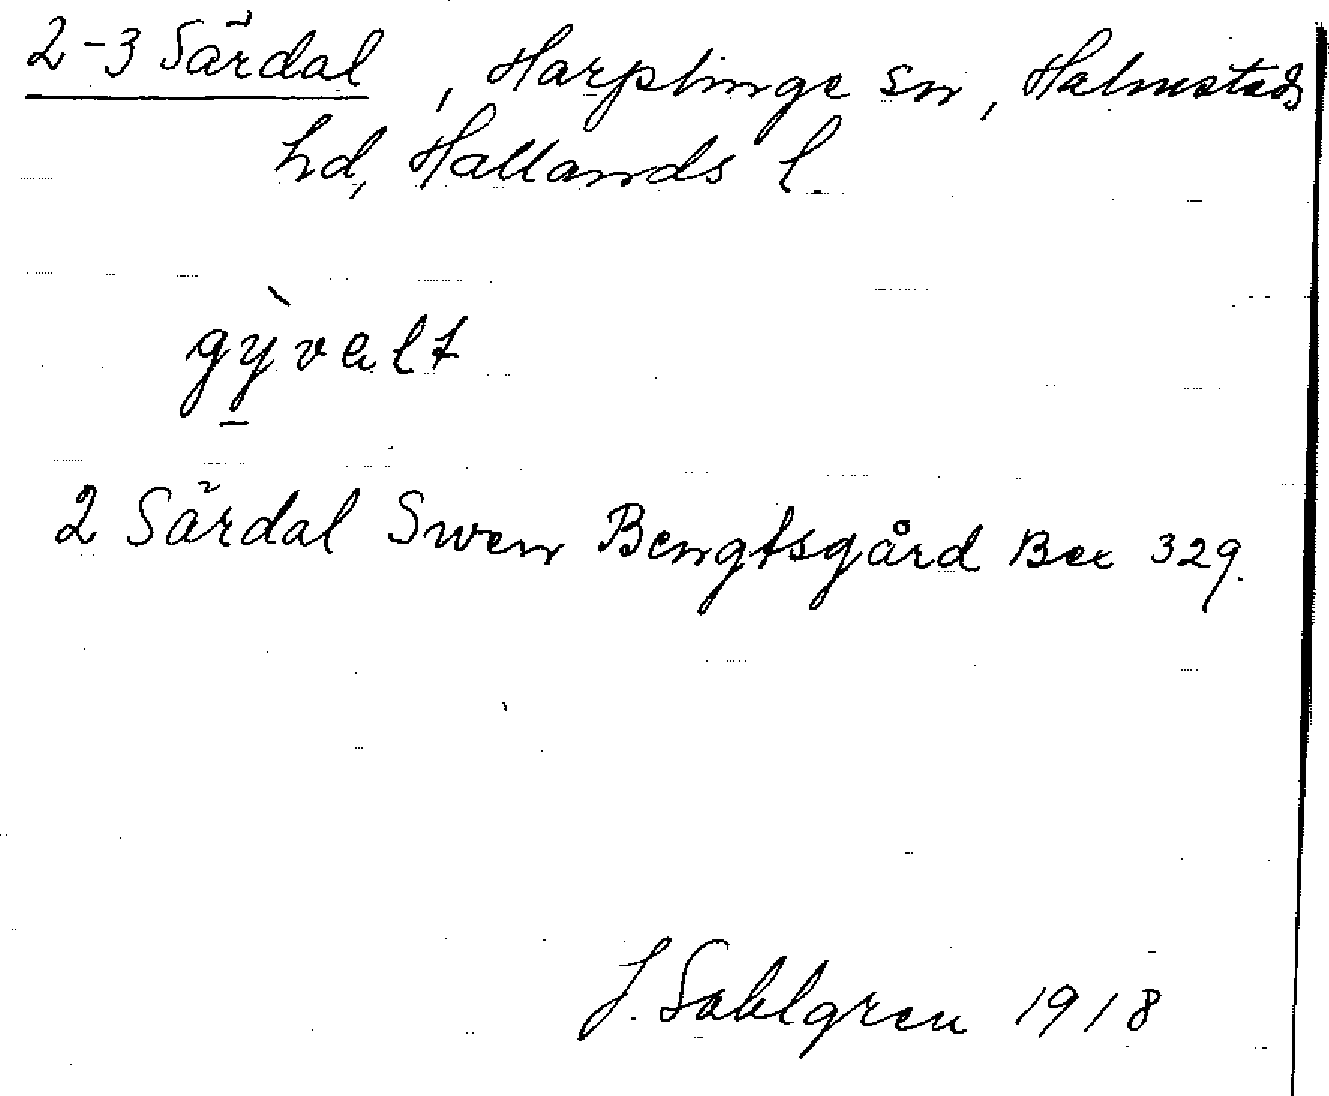 2-3 Särdal, Harplinge sn, Halmstads
hd, Hallands l.
gỳvalt
2 Särdal Swen Bengtsgård Bex 329.
J. Sahlgren 1918